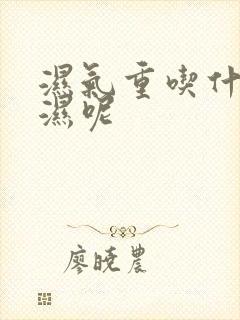 濕氣重喫什
濕呢
廖曉農